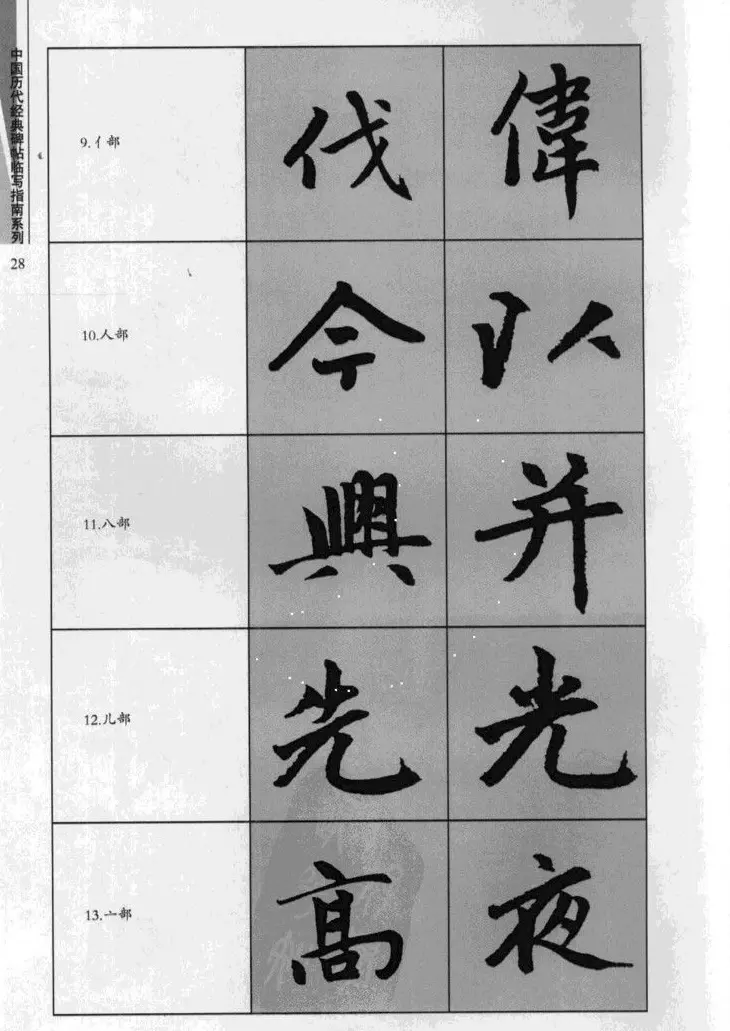 中国历代经典碑帖临写指南系列
28
9.亻部 伐 偉
10.人部 今 以
11.八部 興 并
12.儿部 先 光
13.亠部 髙 夜